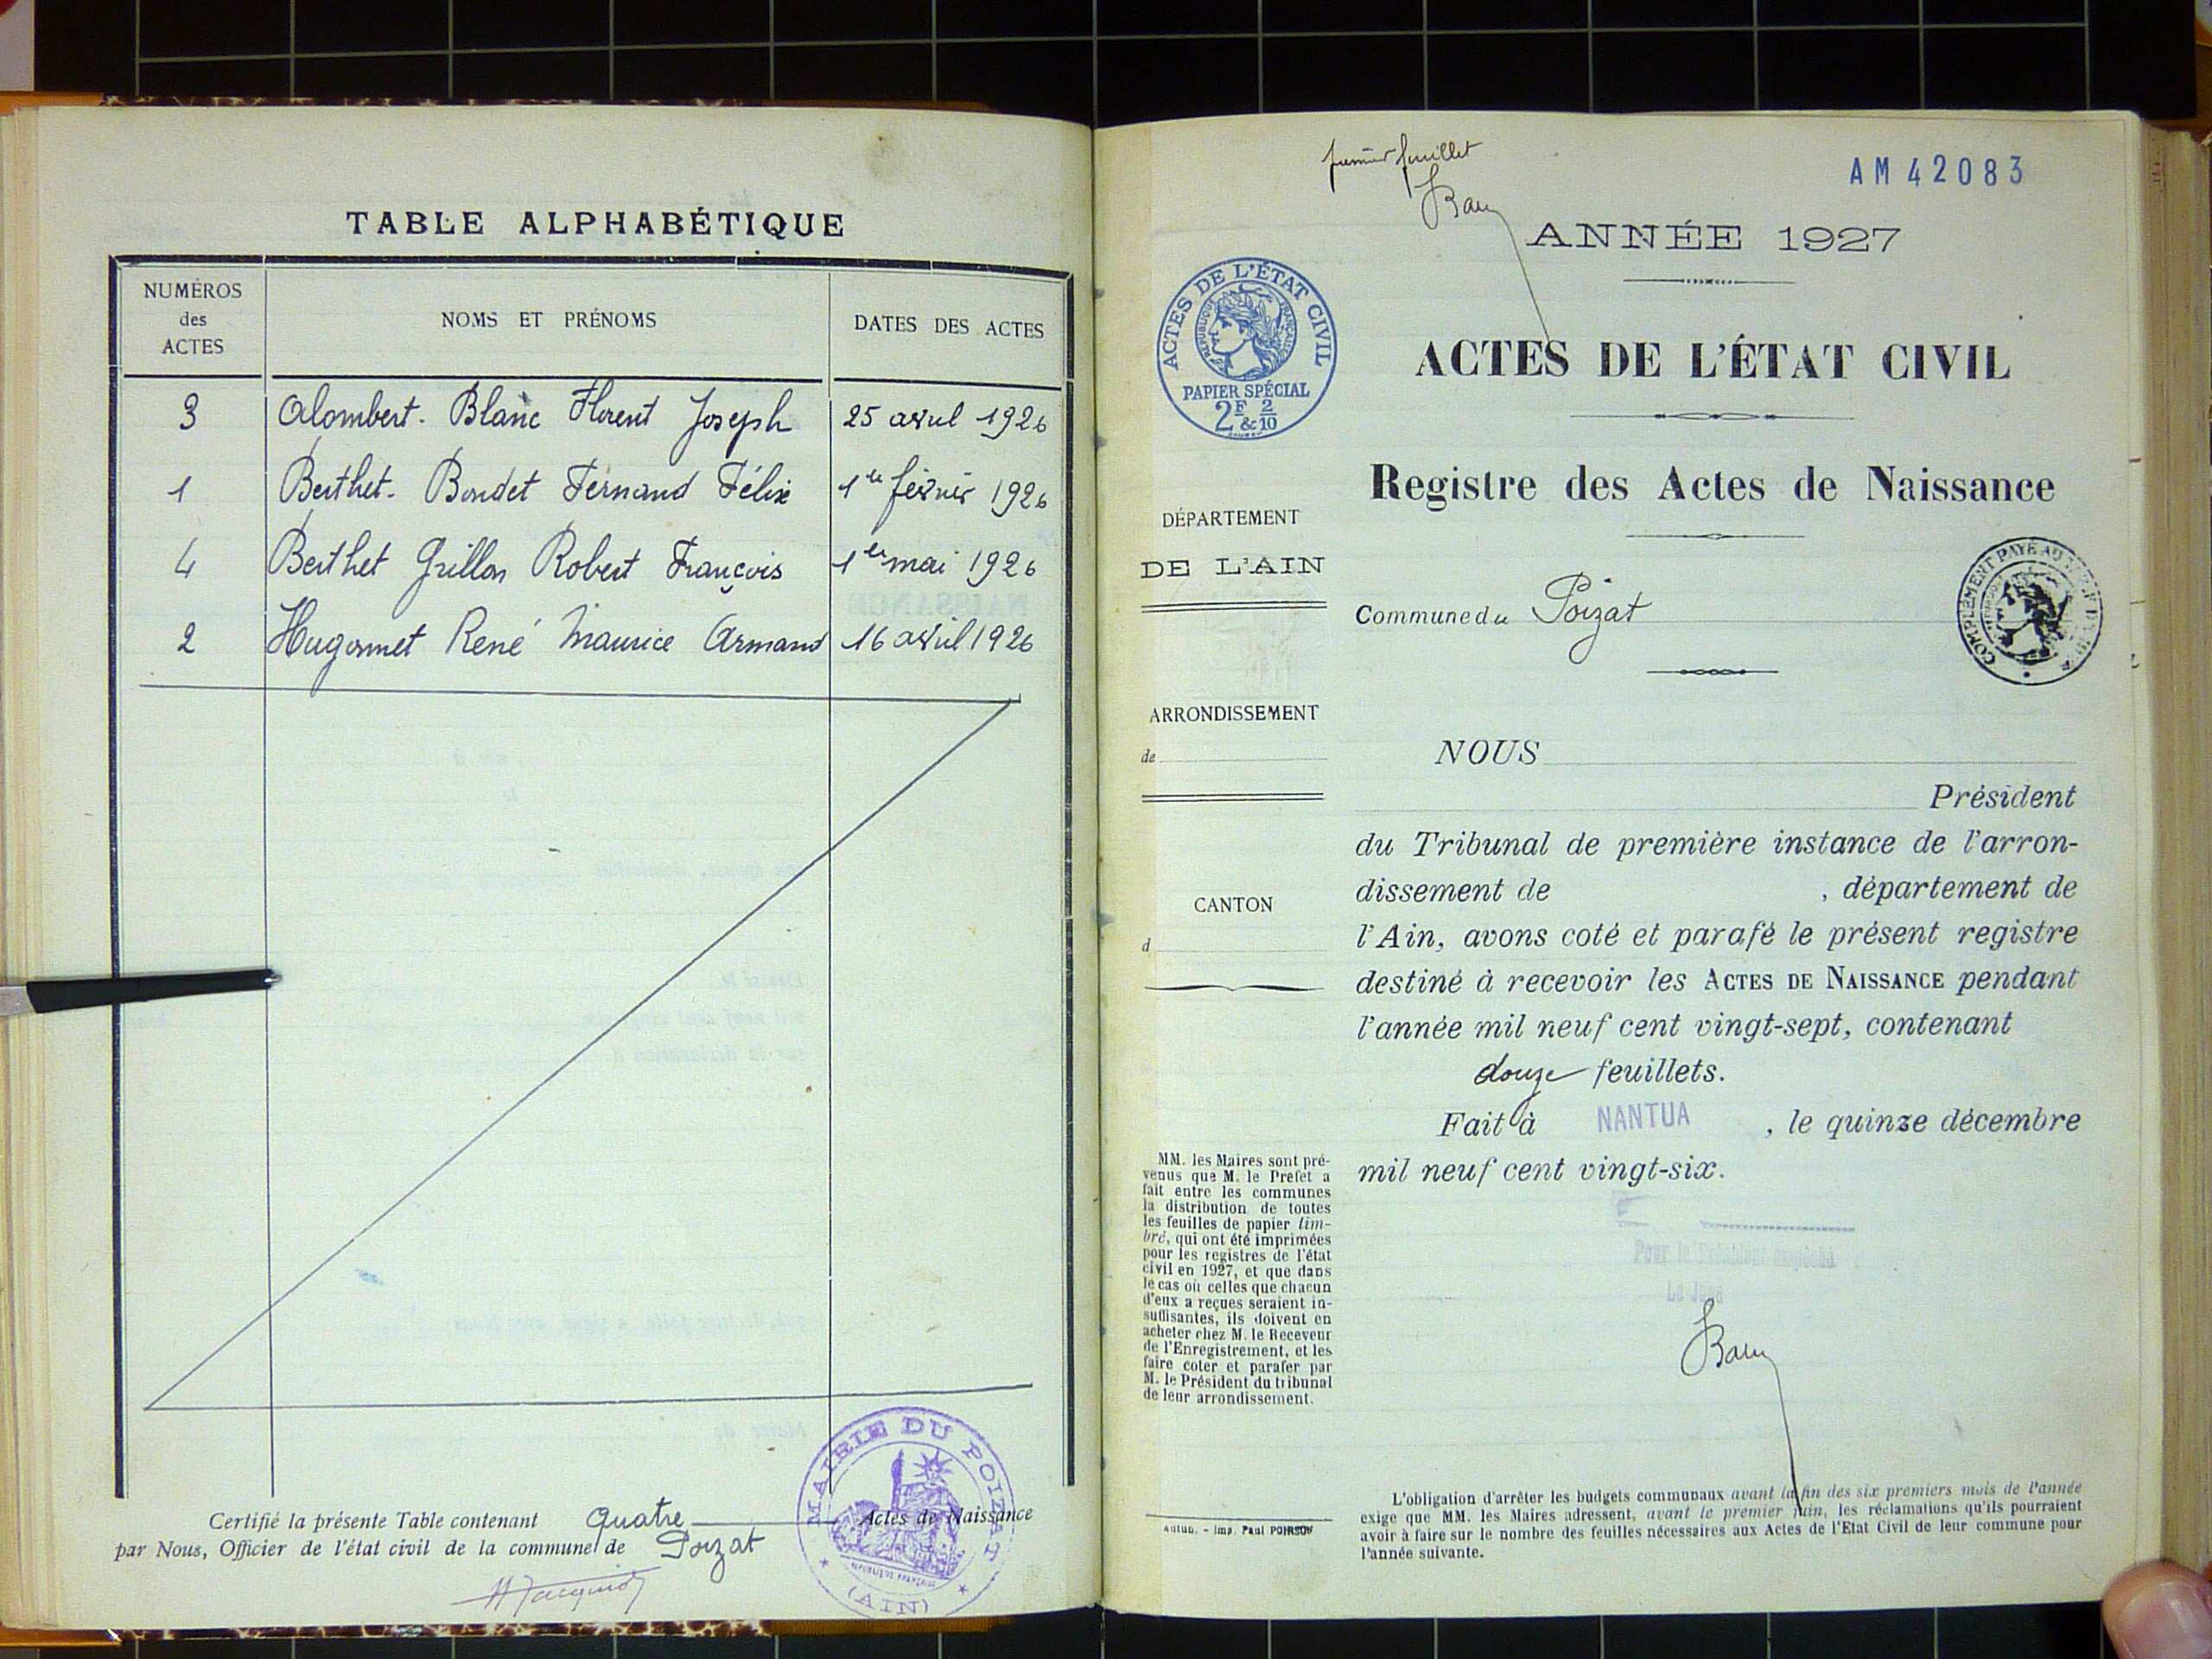 TABLE ALPHABÉTIQUE
NUMÉROS
des
ACTES
NOMS ET PRÉNOMS
DATES DES ACTES
3 Alombert-Blanc Florent Joseph 25 avril 1926
1 Berthet-Bondet Fernand Félix 1er février 1926
4 Berthet Grillon Robert François 1er mai 1926
2 Hugonnet René Maurice Armand 16 avril 1926
Certifié la présente Table contenant Quatre Actes de Naissance
par Nous, Officier de l'état civil de la commune de Poizat
MAIRIE DU POIZAT
RÉPUBLIQUE FRANÇAISE
(AIN)
premier feuillet
AM 42083
ANNÉE 1927
ACTES DE L'ÉTAT CIVIL
RÉPUBLIQUE FRANÇAISE
PAPIER SPÉCIAL
2F & 2/10
ACTES DE L'ÉTAT CIVIL
Registre des Actes de Naissance
DÉPARTEMENT
DE L'AIN
Commune du Poizat
COMPLÉMENT PAYÉ AU
ARRONDISSEMENT
de
CANTON
d
NOUS
Président
du Tribunal de première instance de l'arron-
dissement de , département de
l'Ain, avons coté et parafé le présent registre
destiné à recevoir les ACTES DE NAISSANCE pendant
l'année mil neuf cent vingt-sept, contenant
douze feuillets.
Fait à NANTUA , le quinze décembre
mil neuf cent vingt-six.
Pour le Président empêché
Le Juge
MM. les Maires sont pré-
venus que M. le Préfet a
fait entre les communes
la distribution de toutes
les feuilles de papier tim-
bré, qui ont été imprimées
pour les registres de l'état
civil en 1927, et que dans
le cas où celles que chacun
d'eux a reçues seraient in-
suffisantes, ils doivent en
acheter chez M. le Receveur
de l'Enregistrement, et les
faire coter et parafer par
M. le Président du tribunal
de leur arrondissement.
Autun. - Imp. Paul POIRSON
L'obligation d'arrêter les budgets communaux avant la fin des six premiers mois de l'année
exige que MM. les Maires adressent, avant le premier juin, les réclamations qu'ils pourraient
avoir à faire sur le nombre des feuilles nécessaires aux Actes de l'Etat Civil de leur commune pour
l'année suivante.